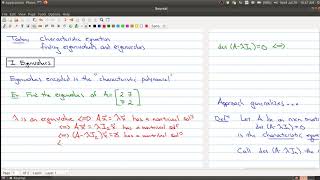 Applications Places
Journal
Today: Characteristic equation
finding eigenvalues and eigenvectors
I. Eigenvalues
Eigenvalues encoded in the "characteristic polynomial"
Ex: Find the eigenvalues of A = [2 7
7 2]
λ is an eigenvalue <=> Ax = λx has a nontrivial solⁿ
<=> Ax = λI₂x has a nontrivial solⁿ
<=> (A-λI₂)x = 0 has a nontrivial solⁿ
det (A-λI₂)=0 <=>
Approach generalizes...
Defⁿ Let A be an nxn
is the characteristic
Call det (A-λIₙ)